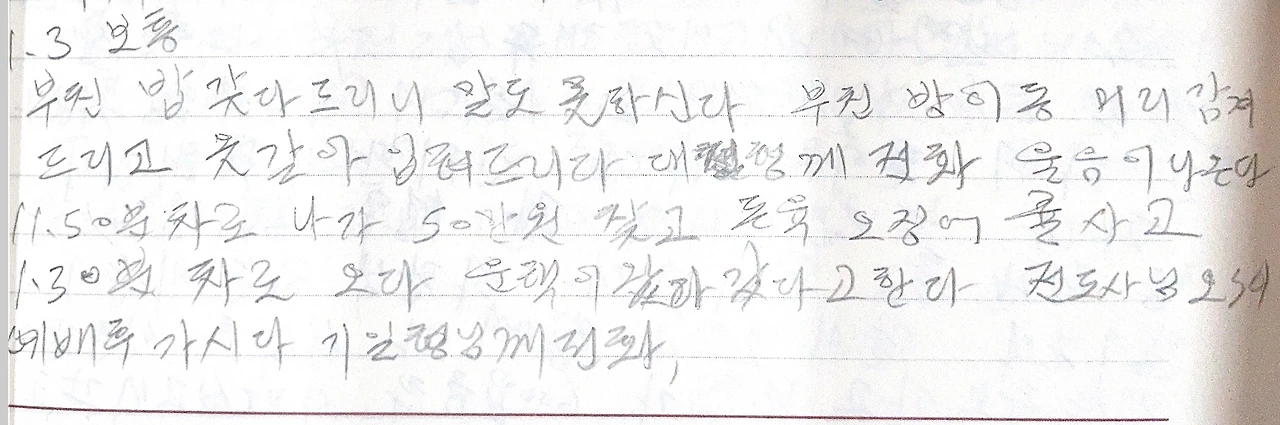 1.3 보통
부친 밥 갖다 드리니 말도 못하신다 부친 방이동 머리감겨
드리고 옷갈아 입혀드리다 대형께 전화 울음이나온다
11.50분 차로 나가 50만원 찾고 돈육 오징어 콜사고
1.30분 차로 오다 운택이 왔다 갔다고한다 전도사님 오셔
예배후 가시다 기일형님께전화,